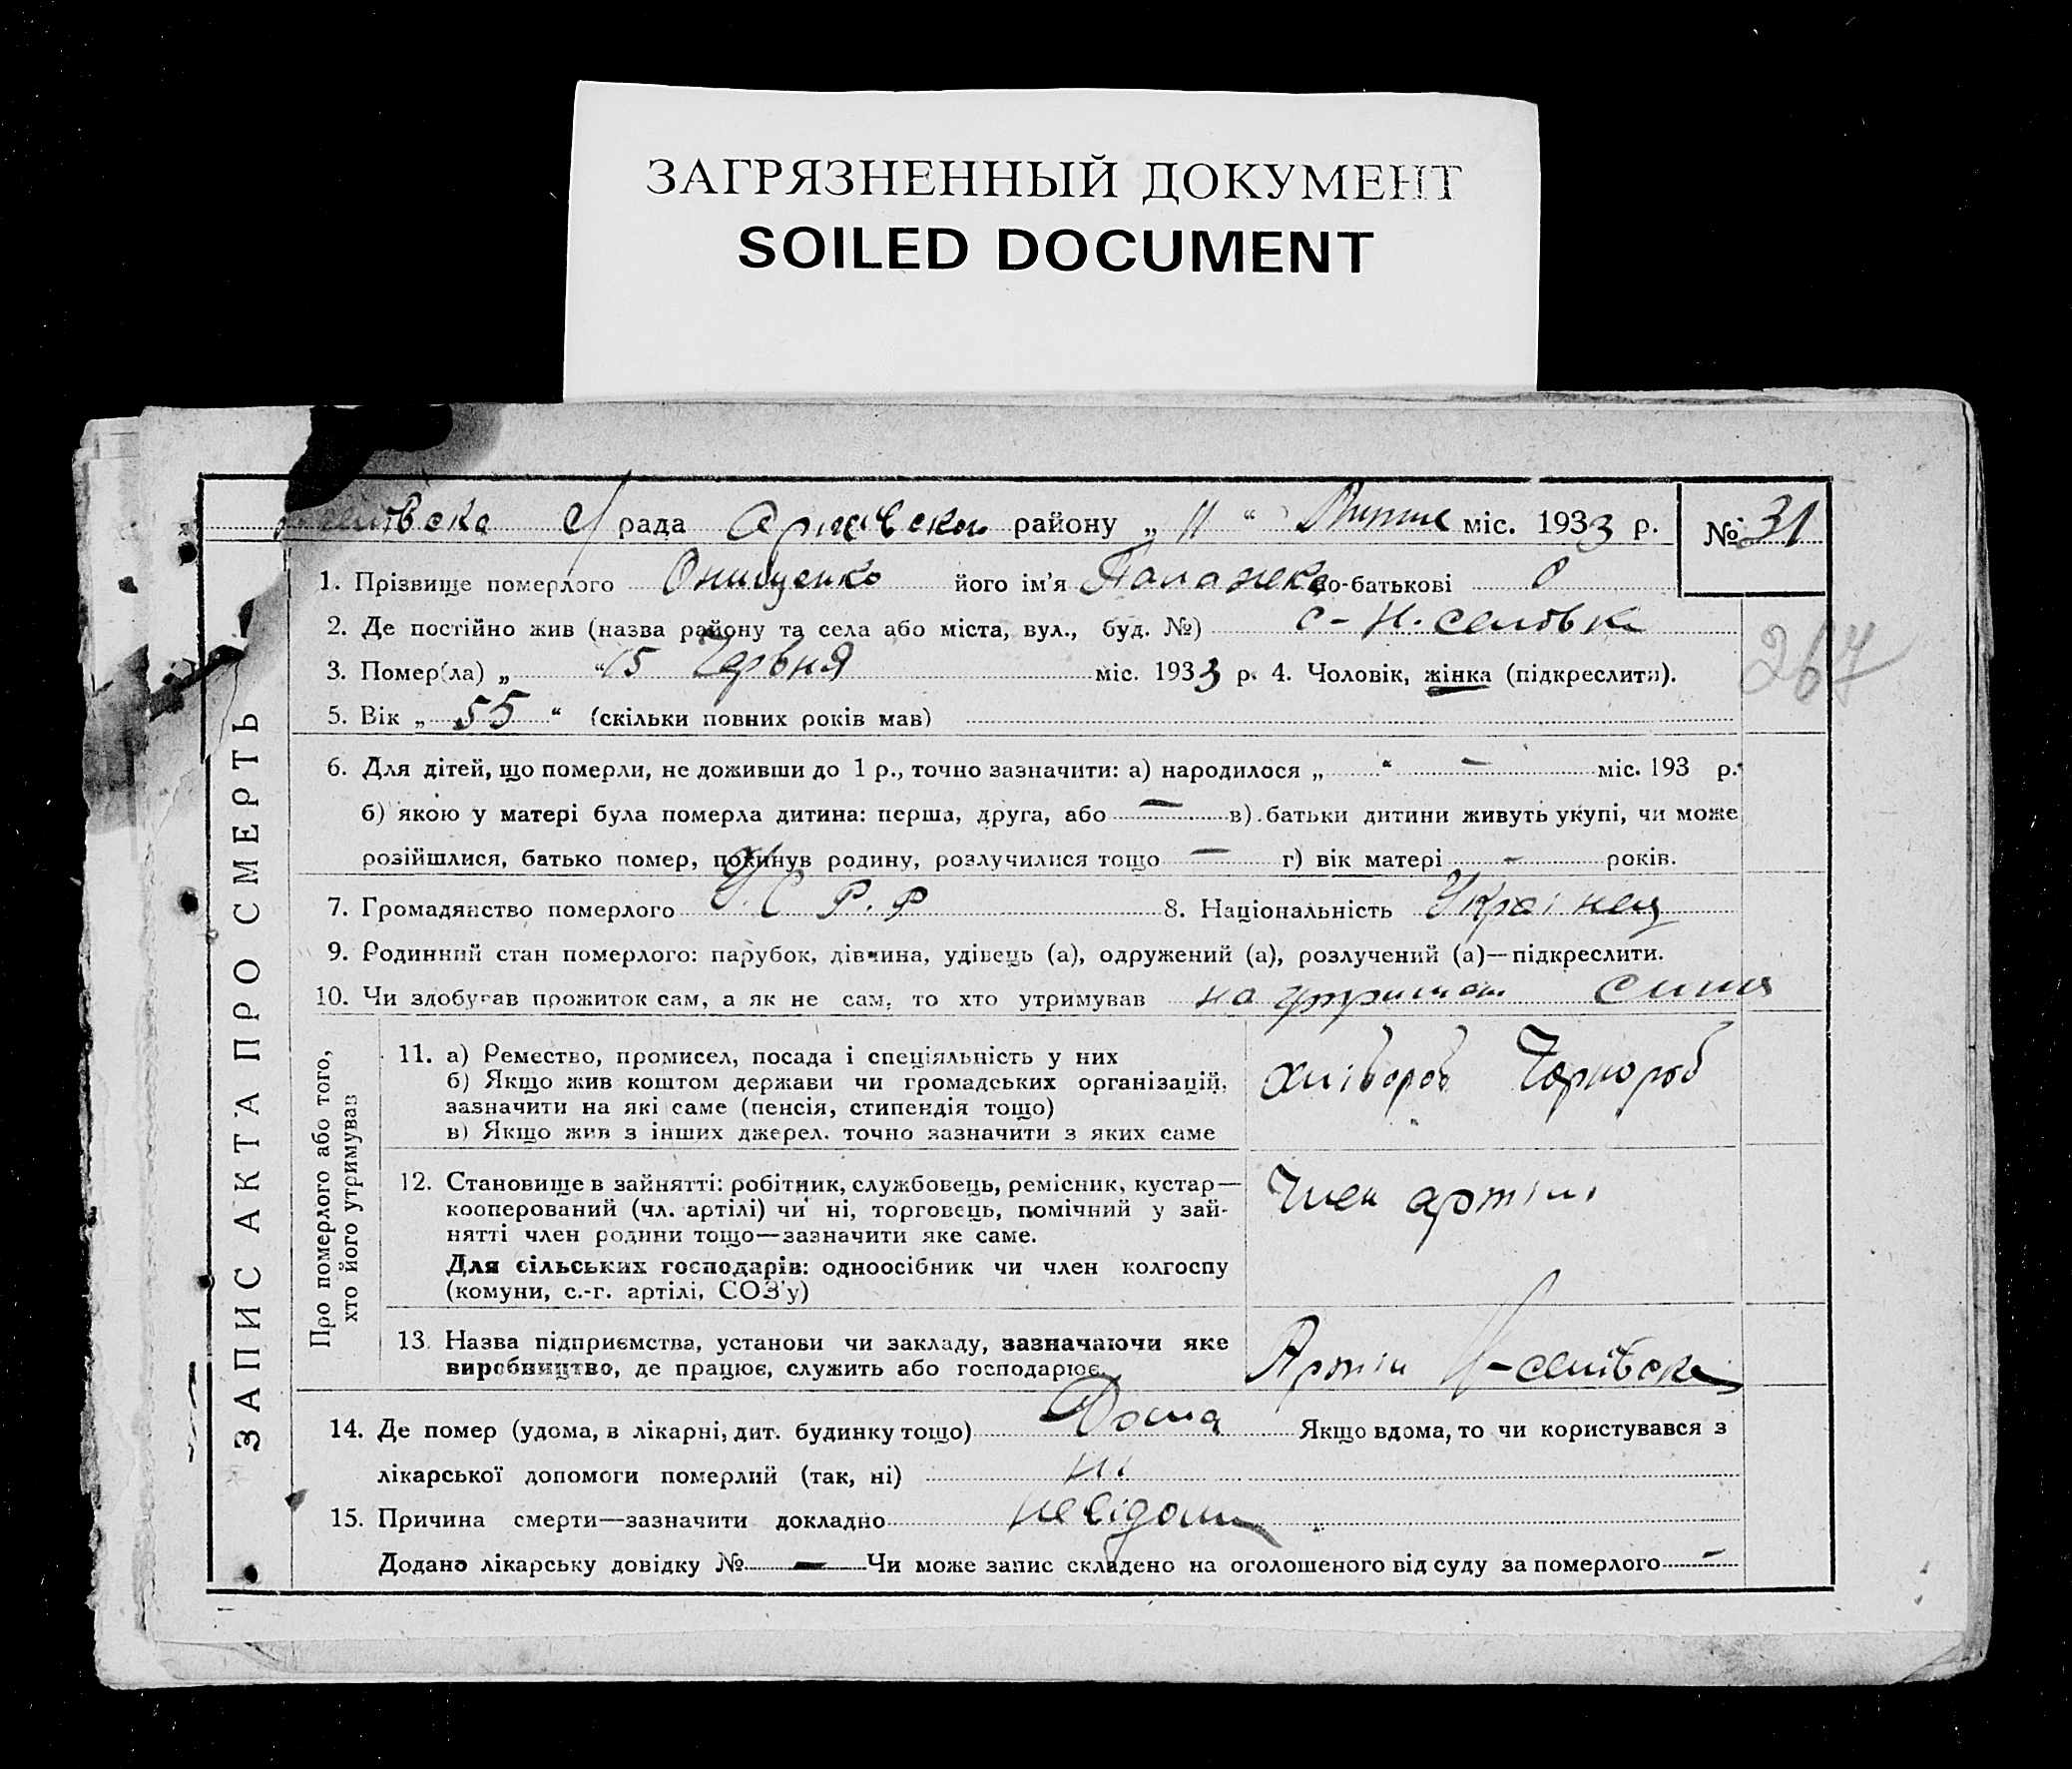 ЗАГРЯЗНЕННЫЙ ДОКУМЕНТ
SOILED DOCUMENT
рада району „ 11 “ міс. 1933 р. № 31
1. Прізвище померлого Онищенко його ім'я Палажка по-батькові
2. Де постійно жив (назва району та села або міста, вул., буд. №) с-Н.селовка
3. Помер(ла) „ “ 15 Червня міс. 1933 р. 4. Чоловік, жінка (підкреслити).
267
5. Вік „ 55 “ (скільки повних років мав)
6. Для дітей, що померли, не доживши до 1 р., точно зазначити: а) народилося „ “ – міс. 193 р.
б) якою у матері була померла дитина: перша, друга, або — в) батьки дитини живуть укупі, чи може
розійшлися, батько помер, покинув родину, розлучилися тощо — г) вік матері - років.
7. Громадянство померлого У.С.Р.Р 8. Національність Українец
9. Родинний стан померлого: парубок, дівчина, удівець (а), одружений (а), розлучений (а)—підкреслити.
10. Чи здобував прожиток сам, а як не сам, то хто утримував на сина
ЗАПИС АКТА ПРО СМЕРТЬ
Про померлого або того,
хто його утримував
11. а) Ремество, промисел, посада і спеціяльність у них
б) Якщо жив коштом держави чи громадських організацій,
зазначити на які саме (пенсія, стипендія тощо)
в) Якщо жив з інших джерел, точно зазначити з яких саме
хлібороб Чорнороб
12. Становище в зайнятті: робітник, службовець, ремісник, кустар—
кооперований (чл. артілі) чи ні, торговець, помічний у зай-
нятті член родини тощо—зазначити яке саме.
Для сільських господарів: одноосібник чи член колгоспу
(комуни, с.-г. артілі, СОЗ'у)
Член артілі
13. Назва підприємства, установи чи закладу, зазначаючи яке
виробництво, де працює, служить або господарює
Артіл Н-селівска
14. Де помер (удома, в лікарні, дит. будинку тощо) Дома Якщо вдома, то чи користувався з
лікарської допомоги померлий (так, ні) ні
15. Причина смерти—зазначити докладно невідома
Додано лікарську довідку № — Чи може запис складено на оголошеного від суду за померлого –